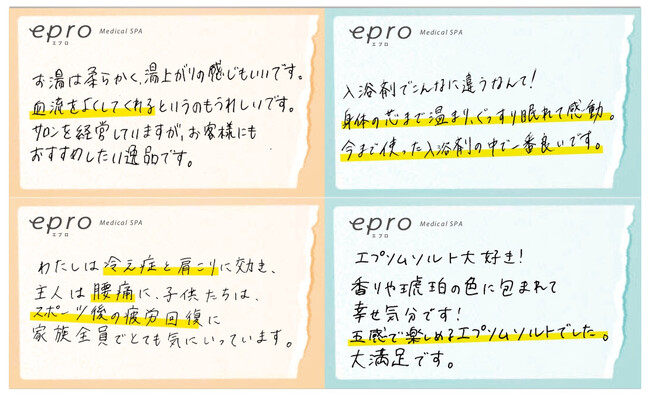 epro Medical SPA
エプロ
お湯は柔らかく、湯上がりの感じもいいです。
血流をよくしてくれるというのもうれしいです。
サロンを経営していますが、お客様にも
おすすめしたい逸品です。
epro Medical SPA
エプロ
入浴剤でこんなに違うなんて!
身体の芯まで温まり、ぐっすり眠れて感動。
今まで使った入浴剤の中で一番良いです。
epro Medical SPA
エプロ
わたしは冷え症と肩こりに効き、
主人は腰痛に、子供たちは、
スポーツ後の疲労回復に
家族全員でとても気にいっています。
epro Medical SPA
エプロ
エプソムソルト大好き!
香りや琥珀の色に包まれて
幸せ気分です!
五感で楽しめるエプソムソルトでした。
大満足です。